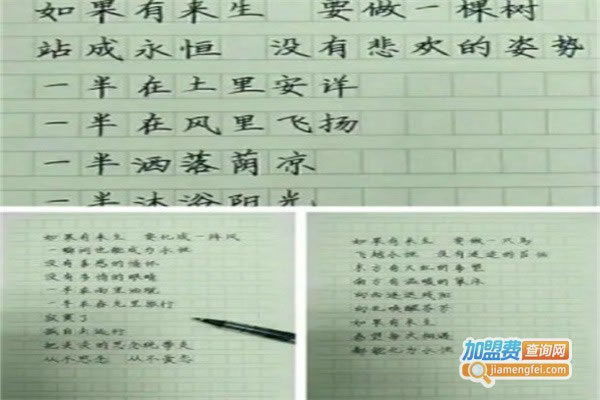 如果有来生 要做一棵树
站成永恒 没有悲欢的姿势
一半在土里安详
一半在风里飞扬
一半洒落荫凉
一半沐浴阳光
如果有来生 要化成一阵风
一瞬间也能成为永恒
没有善感的情怀
没有多情的眼睛
一半在雨里洒脱
一半在春光里旅行
寂寞了
孤自去远行
把淡淡的思念统带走
从不思念 从不爱恋
如果有来生 要做一只鸟
飞越永恒 没有迷途的苦恼
东方有火红的希望
南方有温暖的巢床
向西逐退残阳
向北唤醒芬芳
如果有来生
希望每次相遇
都能化为永恒
加盟费查询网
jiamengfei.com